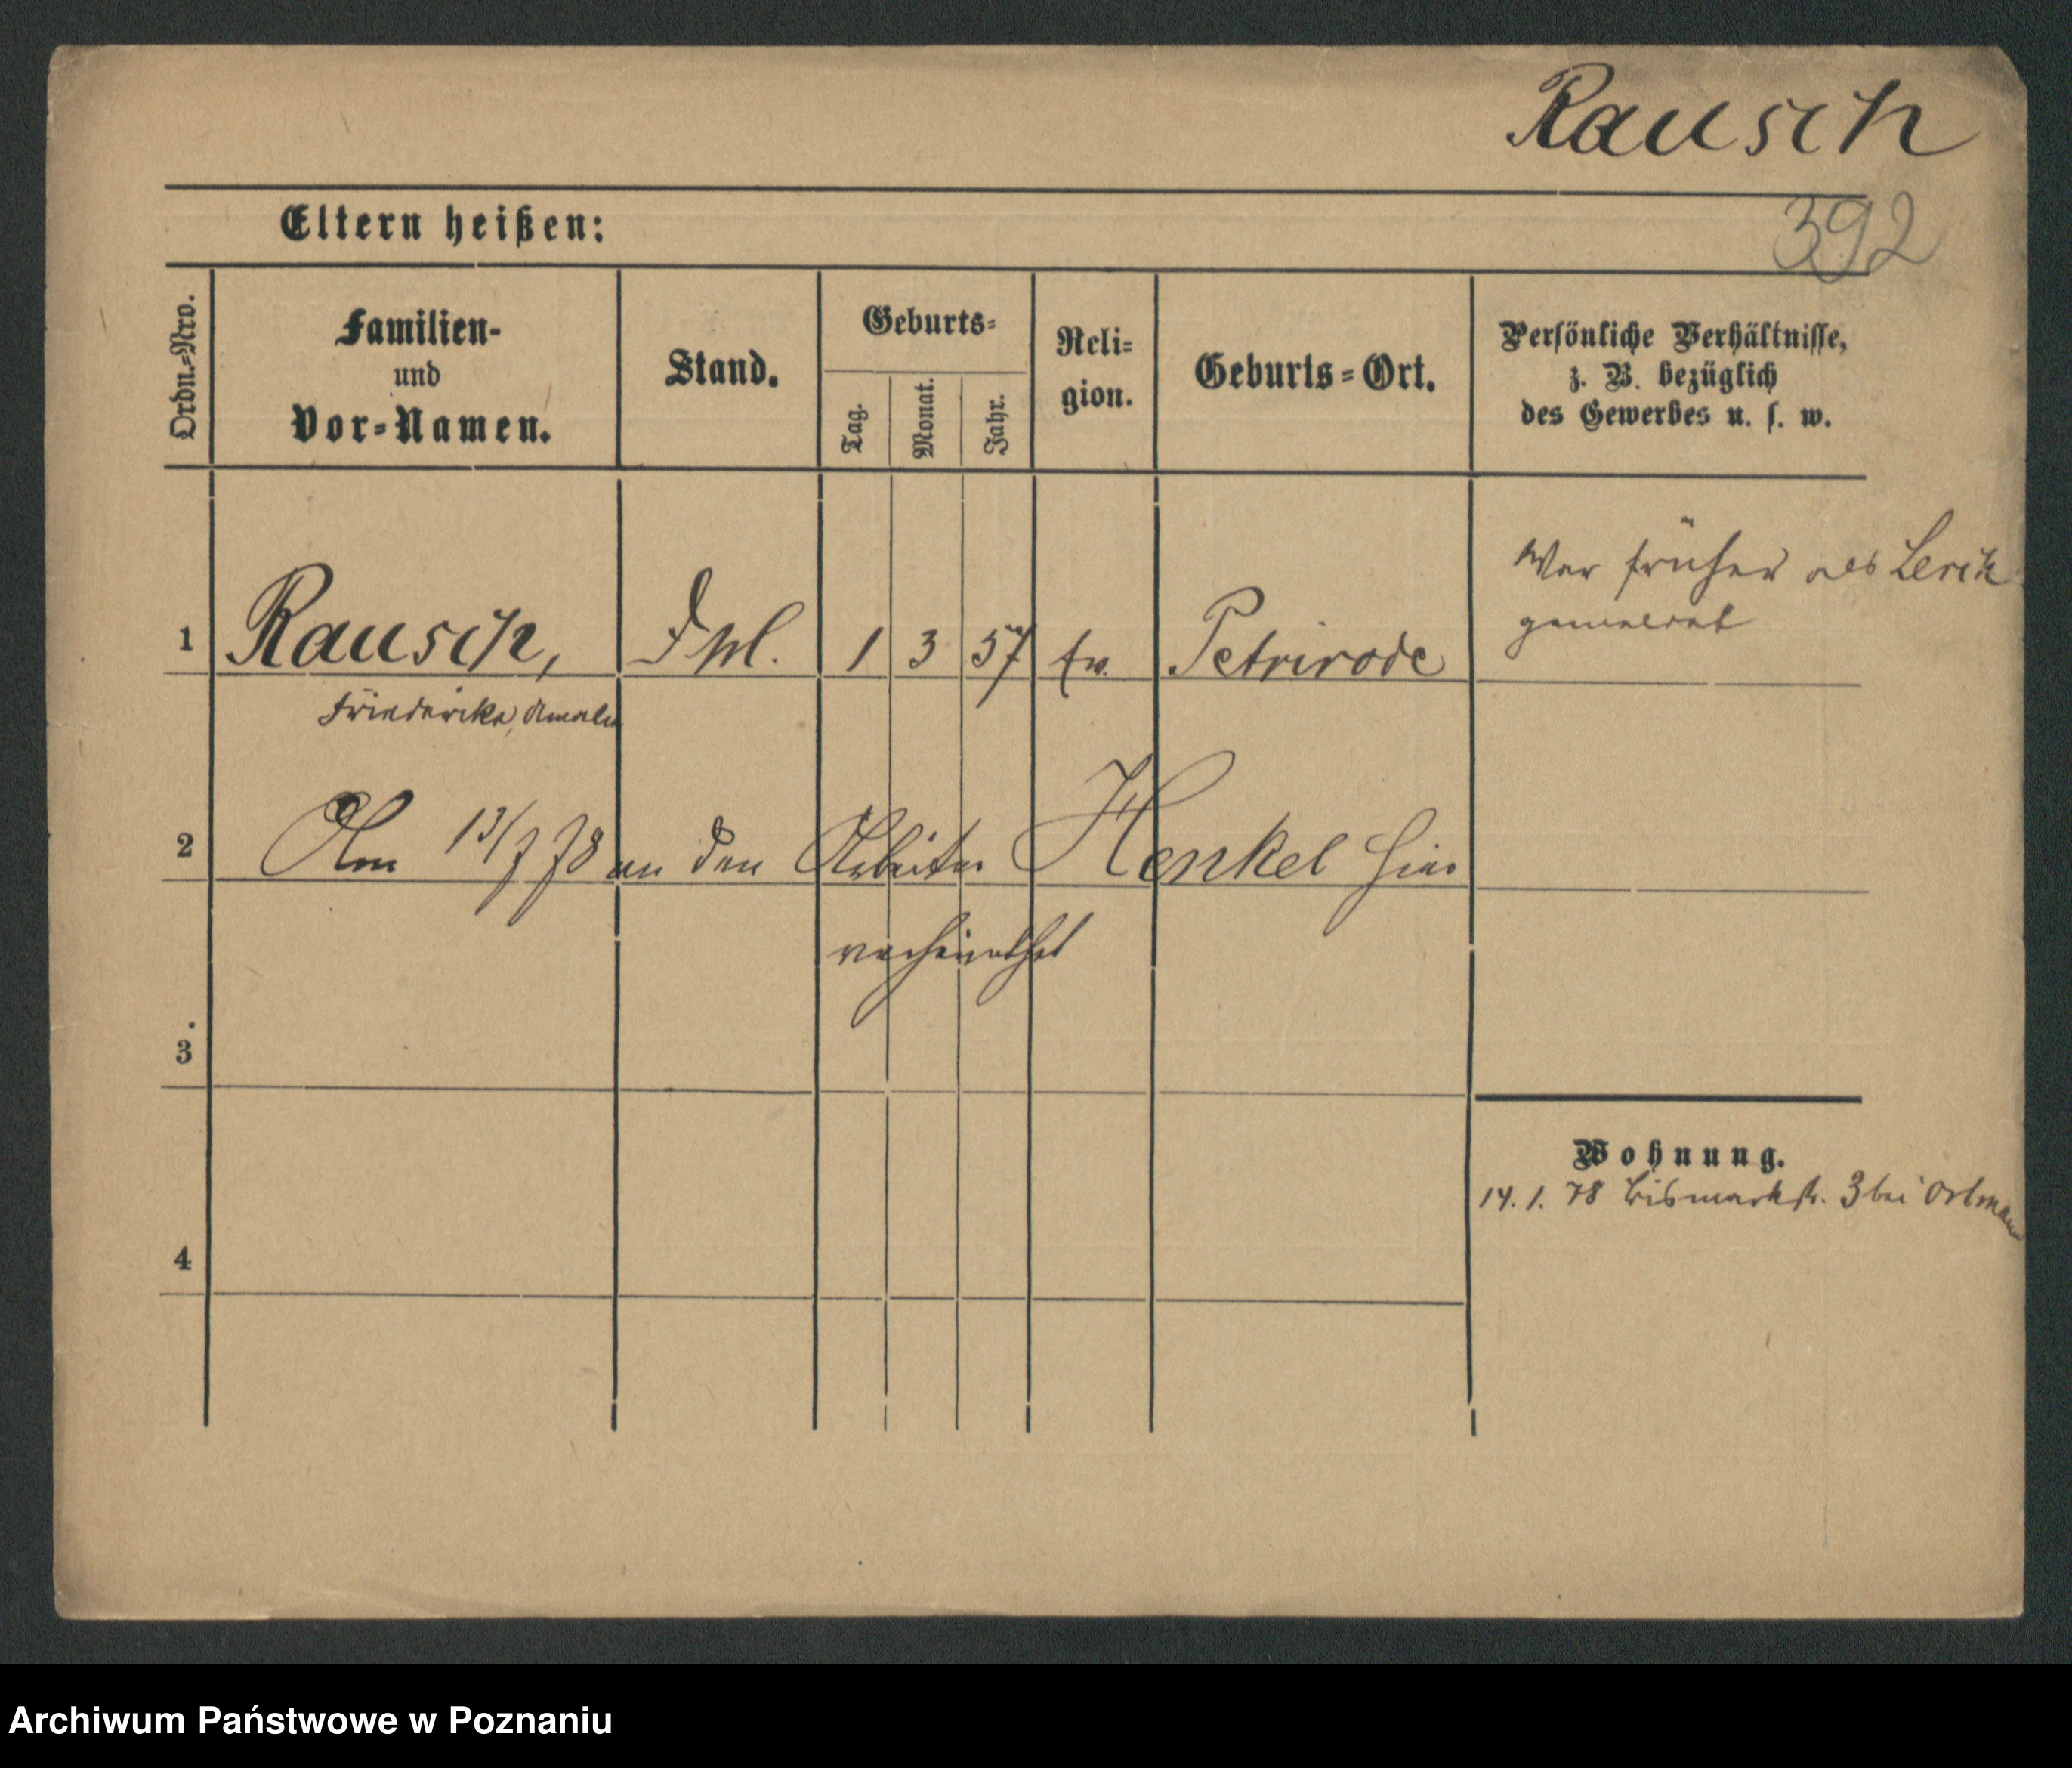 Rausch
392
Eltern heißen:
Ordn.-Nro.
Familien-
und
Vor-Namen.
Stand.
Geburts-
Tag.
Monat.
Jahr.
Reli-
gion.
Geburts-Ort.
Persönliche Verhältnisse,
z. B. bezüglich
des Gewerbes u. s. w.
War früher als Lerch
gemeldet
1 Rausch, 1 3 57 ev. Petrirode
Friederike, Amalie
2 Am 13/7 78 an den Arbeiter Henkel hier
verheirathet
3
Wohnung.
14. 1. 78 Bismarkstr. 3 bei Ortmann
4
Archiwum Państwowe w Poznaniu